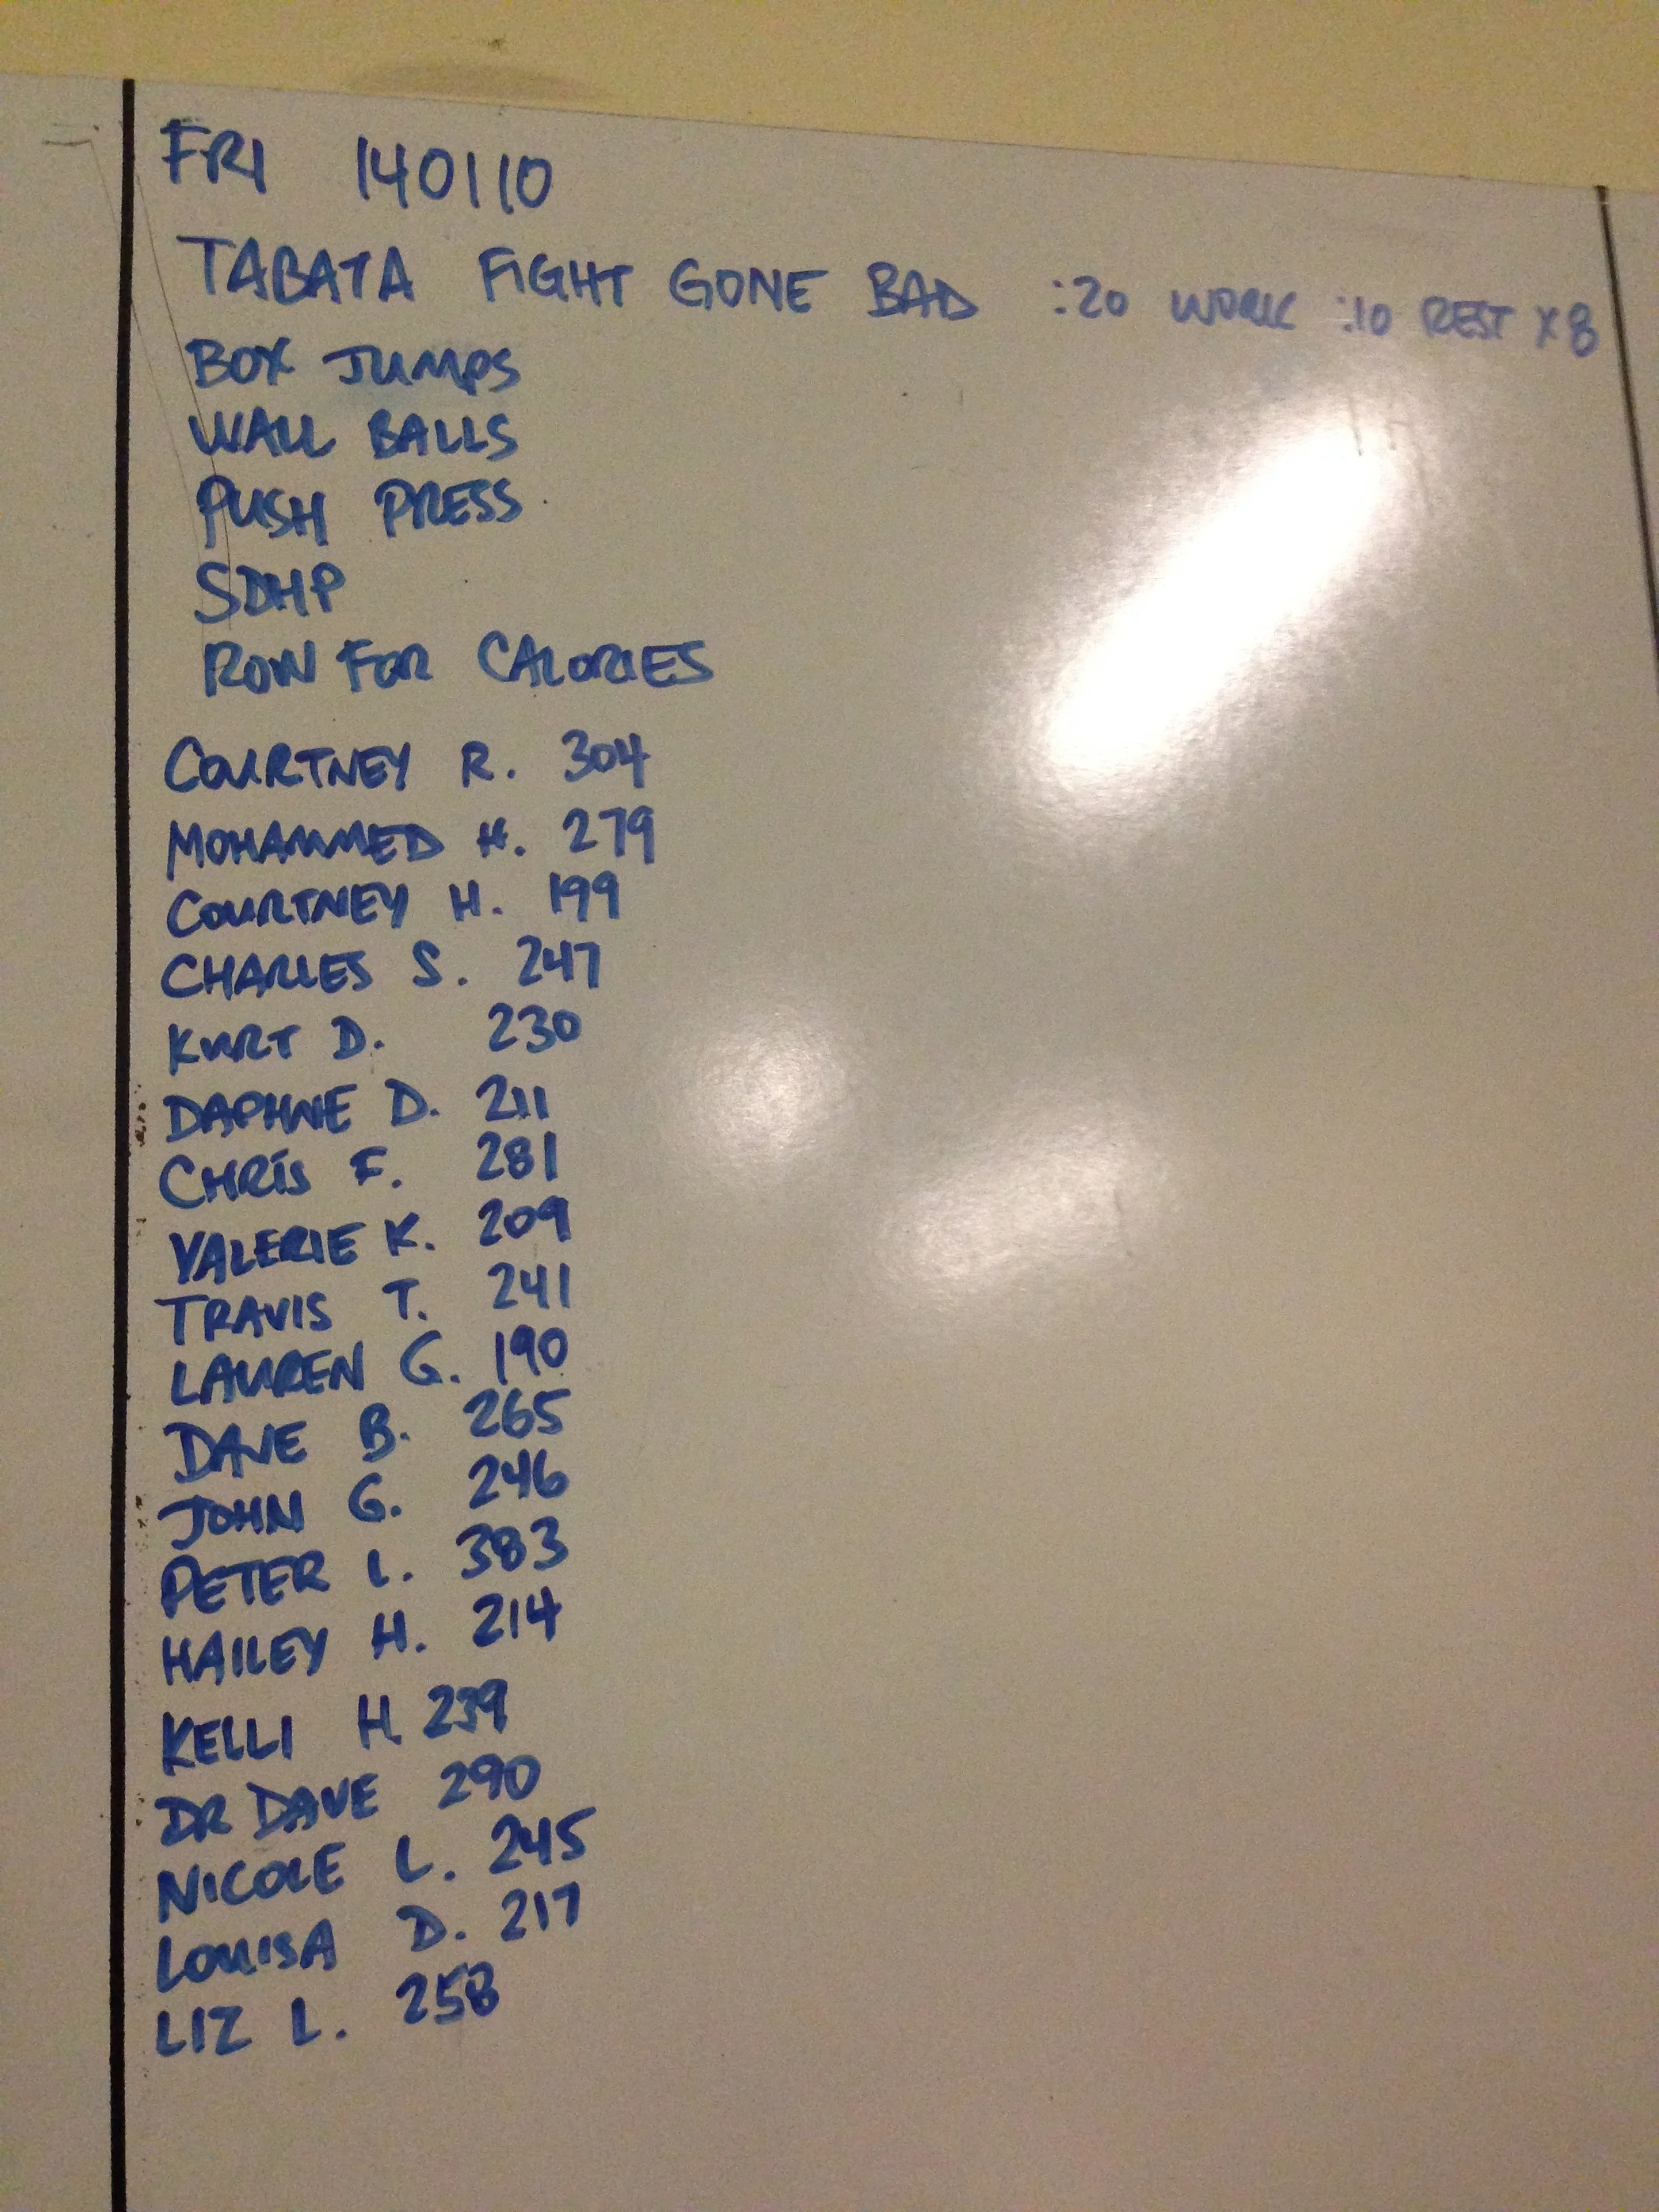 FRI 140110
TABATA FIGHT GONE BAD :20 WORK :10 REST X 8
BOX JUMPS
WALL BALLS
PUSH PRESS
SDHP
ROW FOR CALORIES
COURTNEY R. 304
MOHAMMED H. 279
COURTNEY H. 199
CHARLES S. 247
KURT D. 230
DAPHNE D. 211
CHRIS F. 281
VALERIE K. 209
TRAVIS T. 241
LAUREN G. 190
DAVE B. 265
JOHN G. 246
PETER L. 383
HAILEY H. 214
KELLI H. 239
DR DAVE 290
NICOLE L. 245
LOUISA D. 217
LIZ L. 258